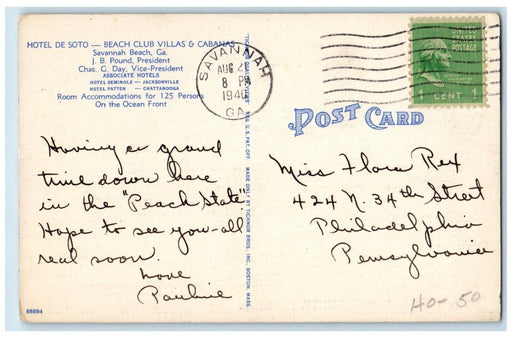 HOTEL DE SOTO — BEACH CLUB VILLAS & CABANAS
Savannah Beach, Ga.
J. B. Pound, President
Chas. G. Day, Vice-President
ASSOCIATE HOTELS
HOTEL SEMINOLE — JACKSONVILLE
HOTEL PATTEN — CHATTANOOGA
Room Accommodations for 125 Persons
On the Ocean Front
SAVANNAH
AUG
8 PM
1940
GA.
UNITED
STATES
POSTAGE
1 CENT 1
POST CARD
Having a grand
time down here
in the "Peach State"
Hope to see you-all
real soon.
Love
Pauline
REG. U.S. PAT. OFF. MADE ONLY BY TICHNOR BROS. INC. BOSTON, MASS.
Miss Flora Rex
424 N. 34th Street
Philadelphia
Pennsylvania
68894
40-50